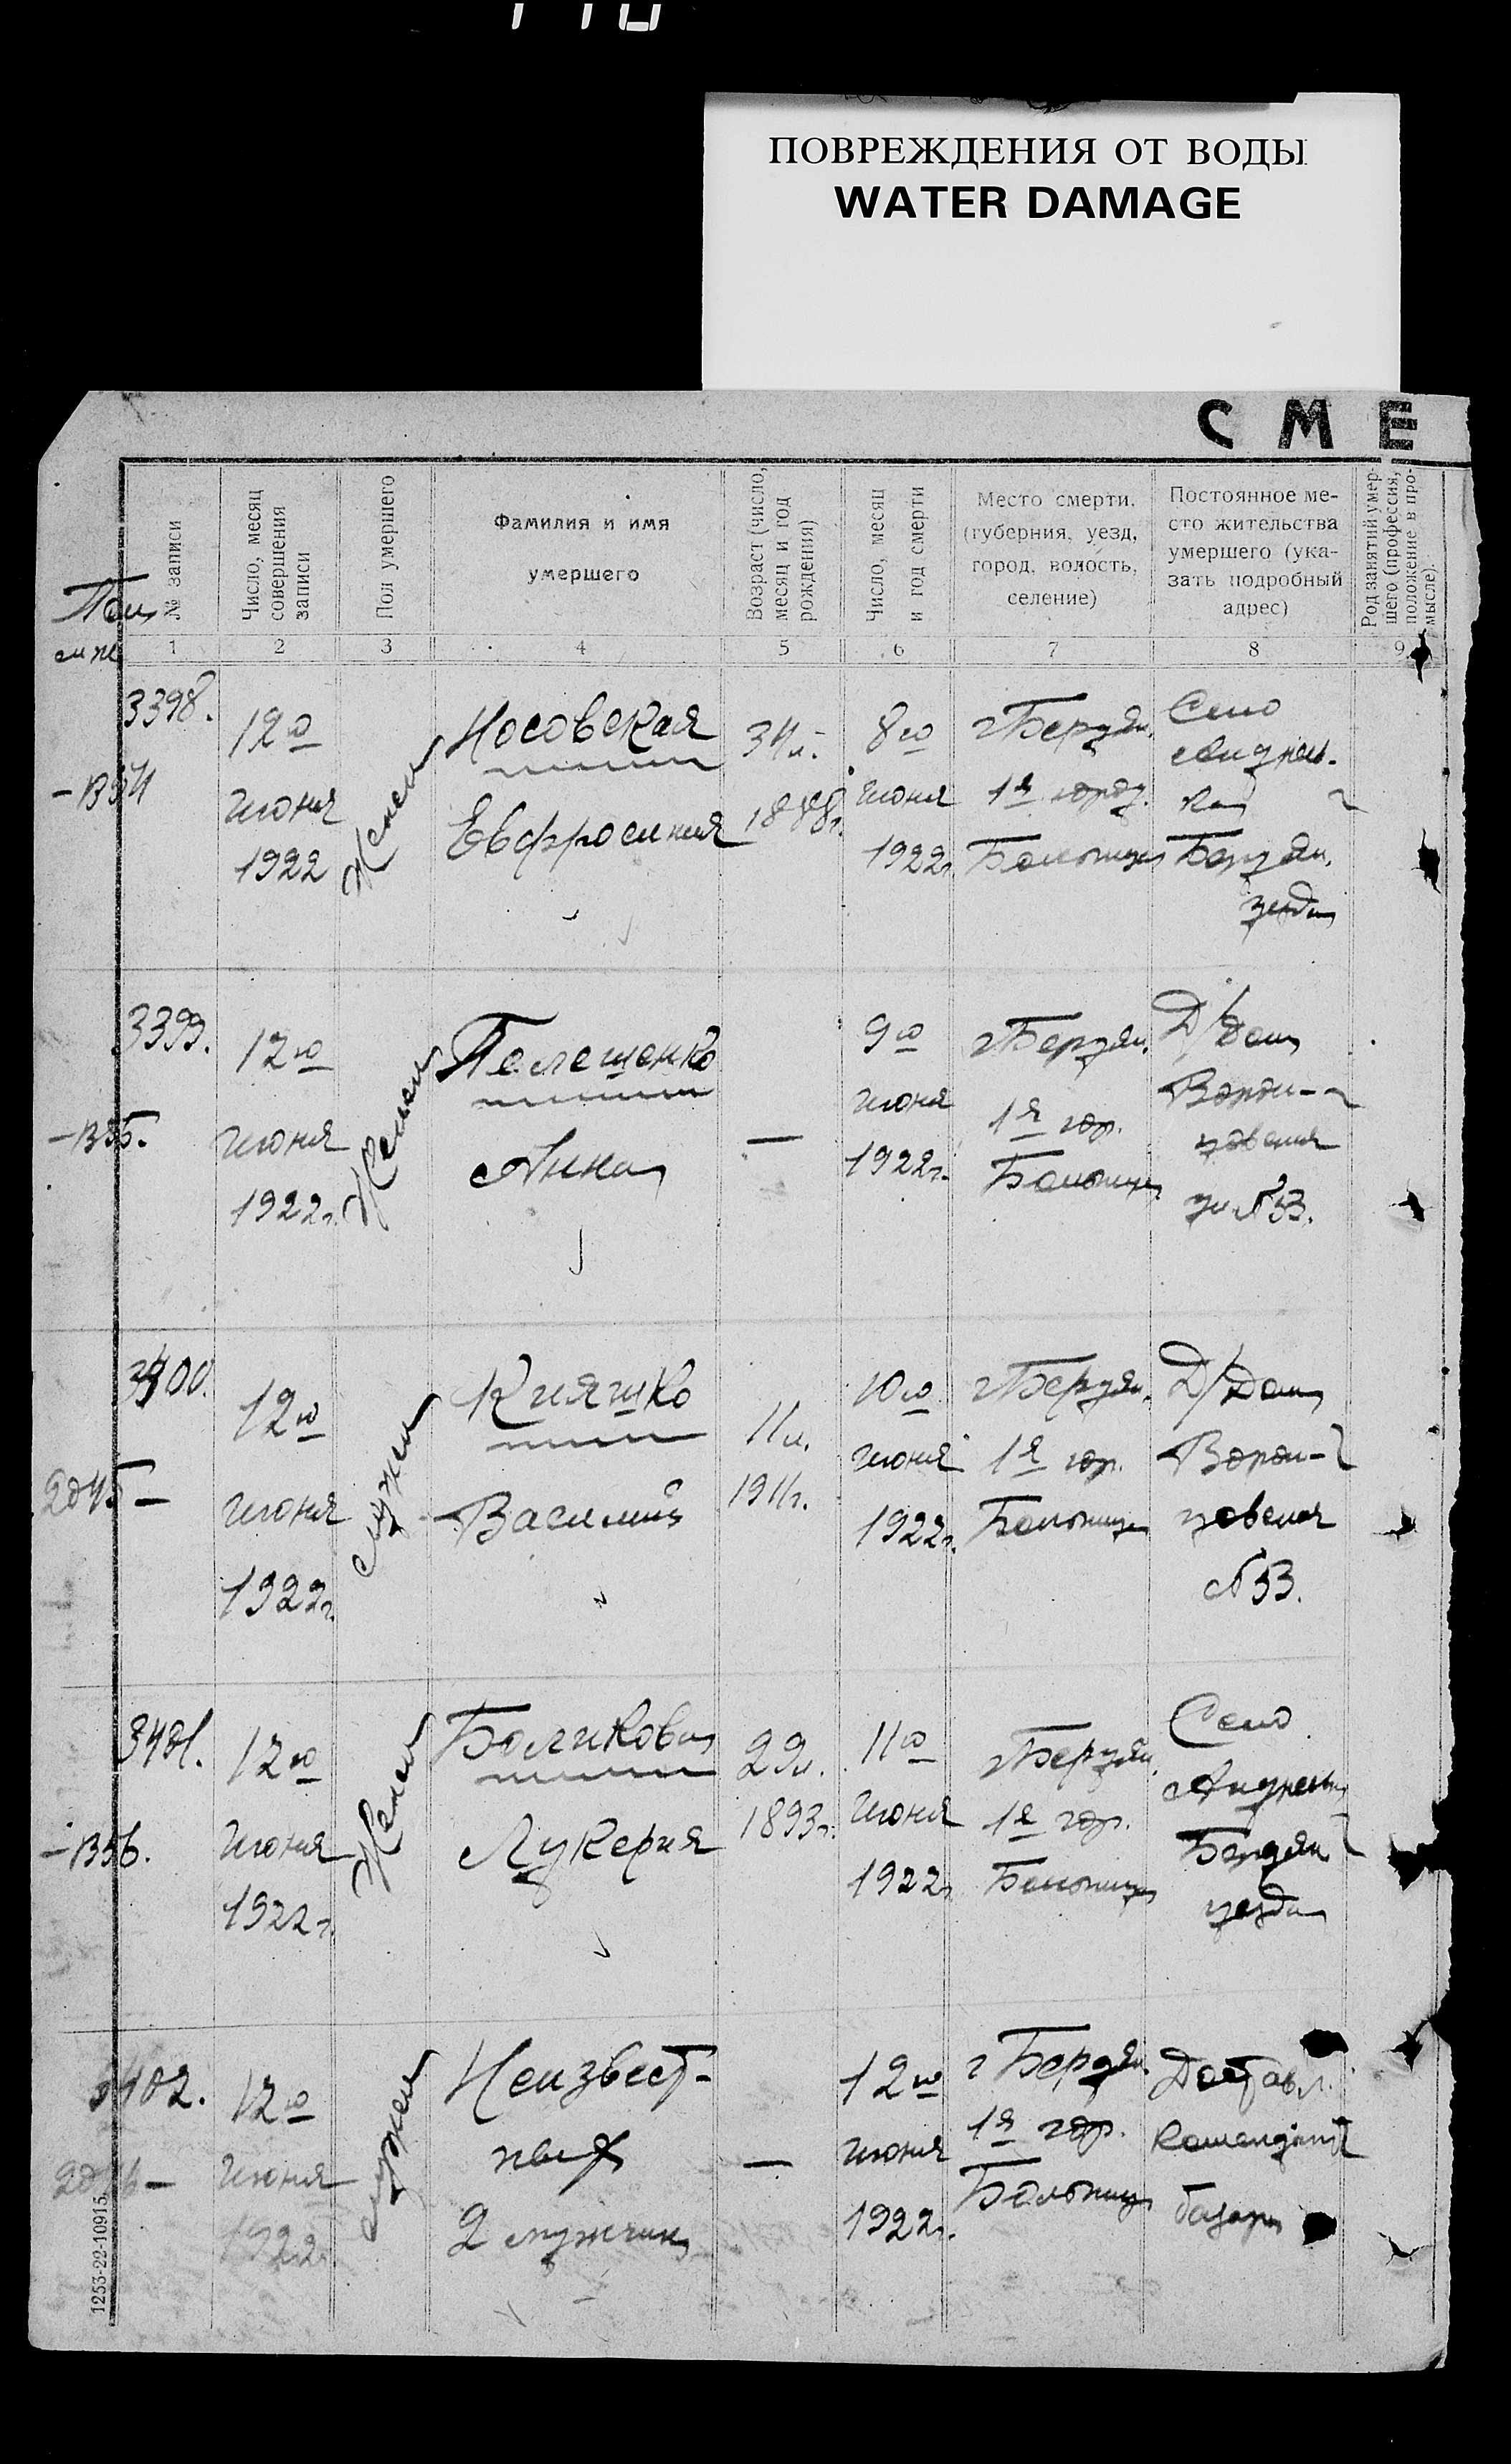 ПОВРЕЖДЕНИЯ ОТ ВОДЫ
WATER DAMAGE
С М Е
№ записи
Число, месяц
совершения
записи
Пол умершего
Фамилия и имя
умершего
Возраст (число,
месяц и год
рождения)
Число, месяц
и год смерти
Место смерти.
(губерния, уезд,
город, волость,
селение)
Постоянное ме-
сто жительства
умершего (ука-
зать подробный
адрес)
Род занятий умер-
шего (профессия,
положение в про-
мысле).
1 2 3 4 5 6 7 8 9
3398.
12го
июня
1922
Женск
Носовская
Евфросиния
34 л.
1888г.
8го
июня
1922г.
г Бердян.
1я город.
Больница
Село
Бердян.
уезда
3399.
12го
июня
1922г.
Женск
Полещенко
Анна
—
9го
июня
1922г.
г Бердян.
1я гор.
Больница
Д/Дом
№33.
3400.
12го
июня
1922г.
мужск
Кияшко
Василий
11л.
1911г.
10го
июня
1922г.
г Бердян.
1я гор.
Больница
Д/Дом
№33.
2045 —
3401.
12го
июня
1922г.
Женск
Боликова
Лукерия
29л.
1893г.
11го
июня
1922г
г Бердян.
1я гор.
Больница
Село
Бердян
уезда
3402.
12го
июня
1922
мужск
Неизвест-
ных
2 мужчин
—
12го
июня
1922г.
г Бердян.
1я гор.
Больница
Доставл.
базара
1253-22-10915